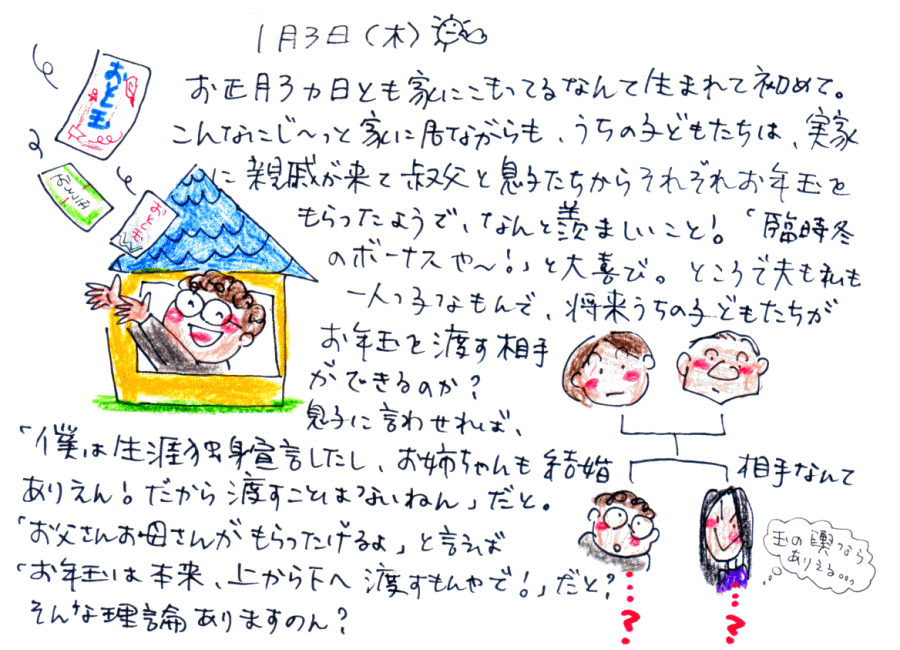 1月3日(木)
おとし玉
おとし玉
おとし玉
お正月3ヵ日とも家にこもってるなんて生まれて初めて。
こんなにじ〜っと家に居ながらも、うちの子どもたちは、実家
に親戚が来て叔父と息子たちからそれぞれお年玉を
もらったようで、なんと羨ましいこと!。「臨時冬
のボーナスや〜!」と大喜び。ところで夫も私も
一人っ子なもんで、将来うちの子どもたちが
お年玉を渡す相手
ができるのか?
息子に言わせれば、
「僕は生涯独身宣言したし、お姉ちゃんも結婚相手なんて
ありえん!だから渡すことはないねん」だと。
「お父さんお母さんがもらったげるよ」と言えば
「お年玉は本来、上から下へ渡すもんやで!」だと?
そんな理論ありますのん?
玉の輿なら
ありえる…
?
?